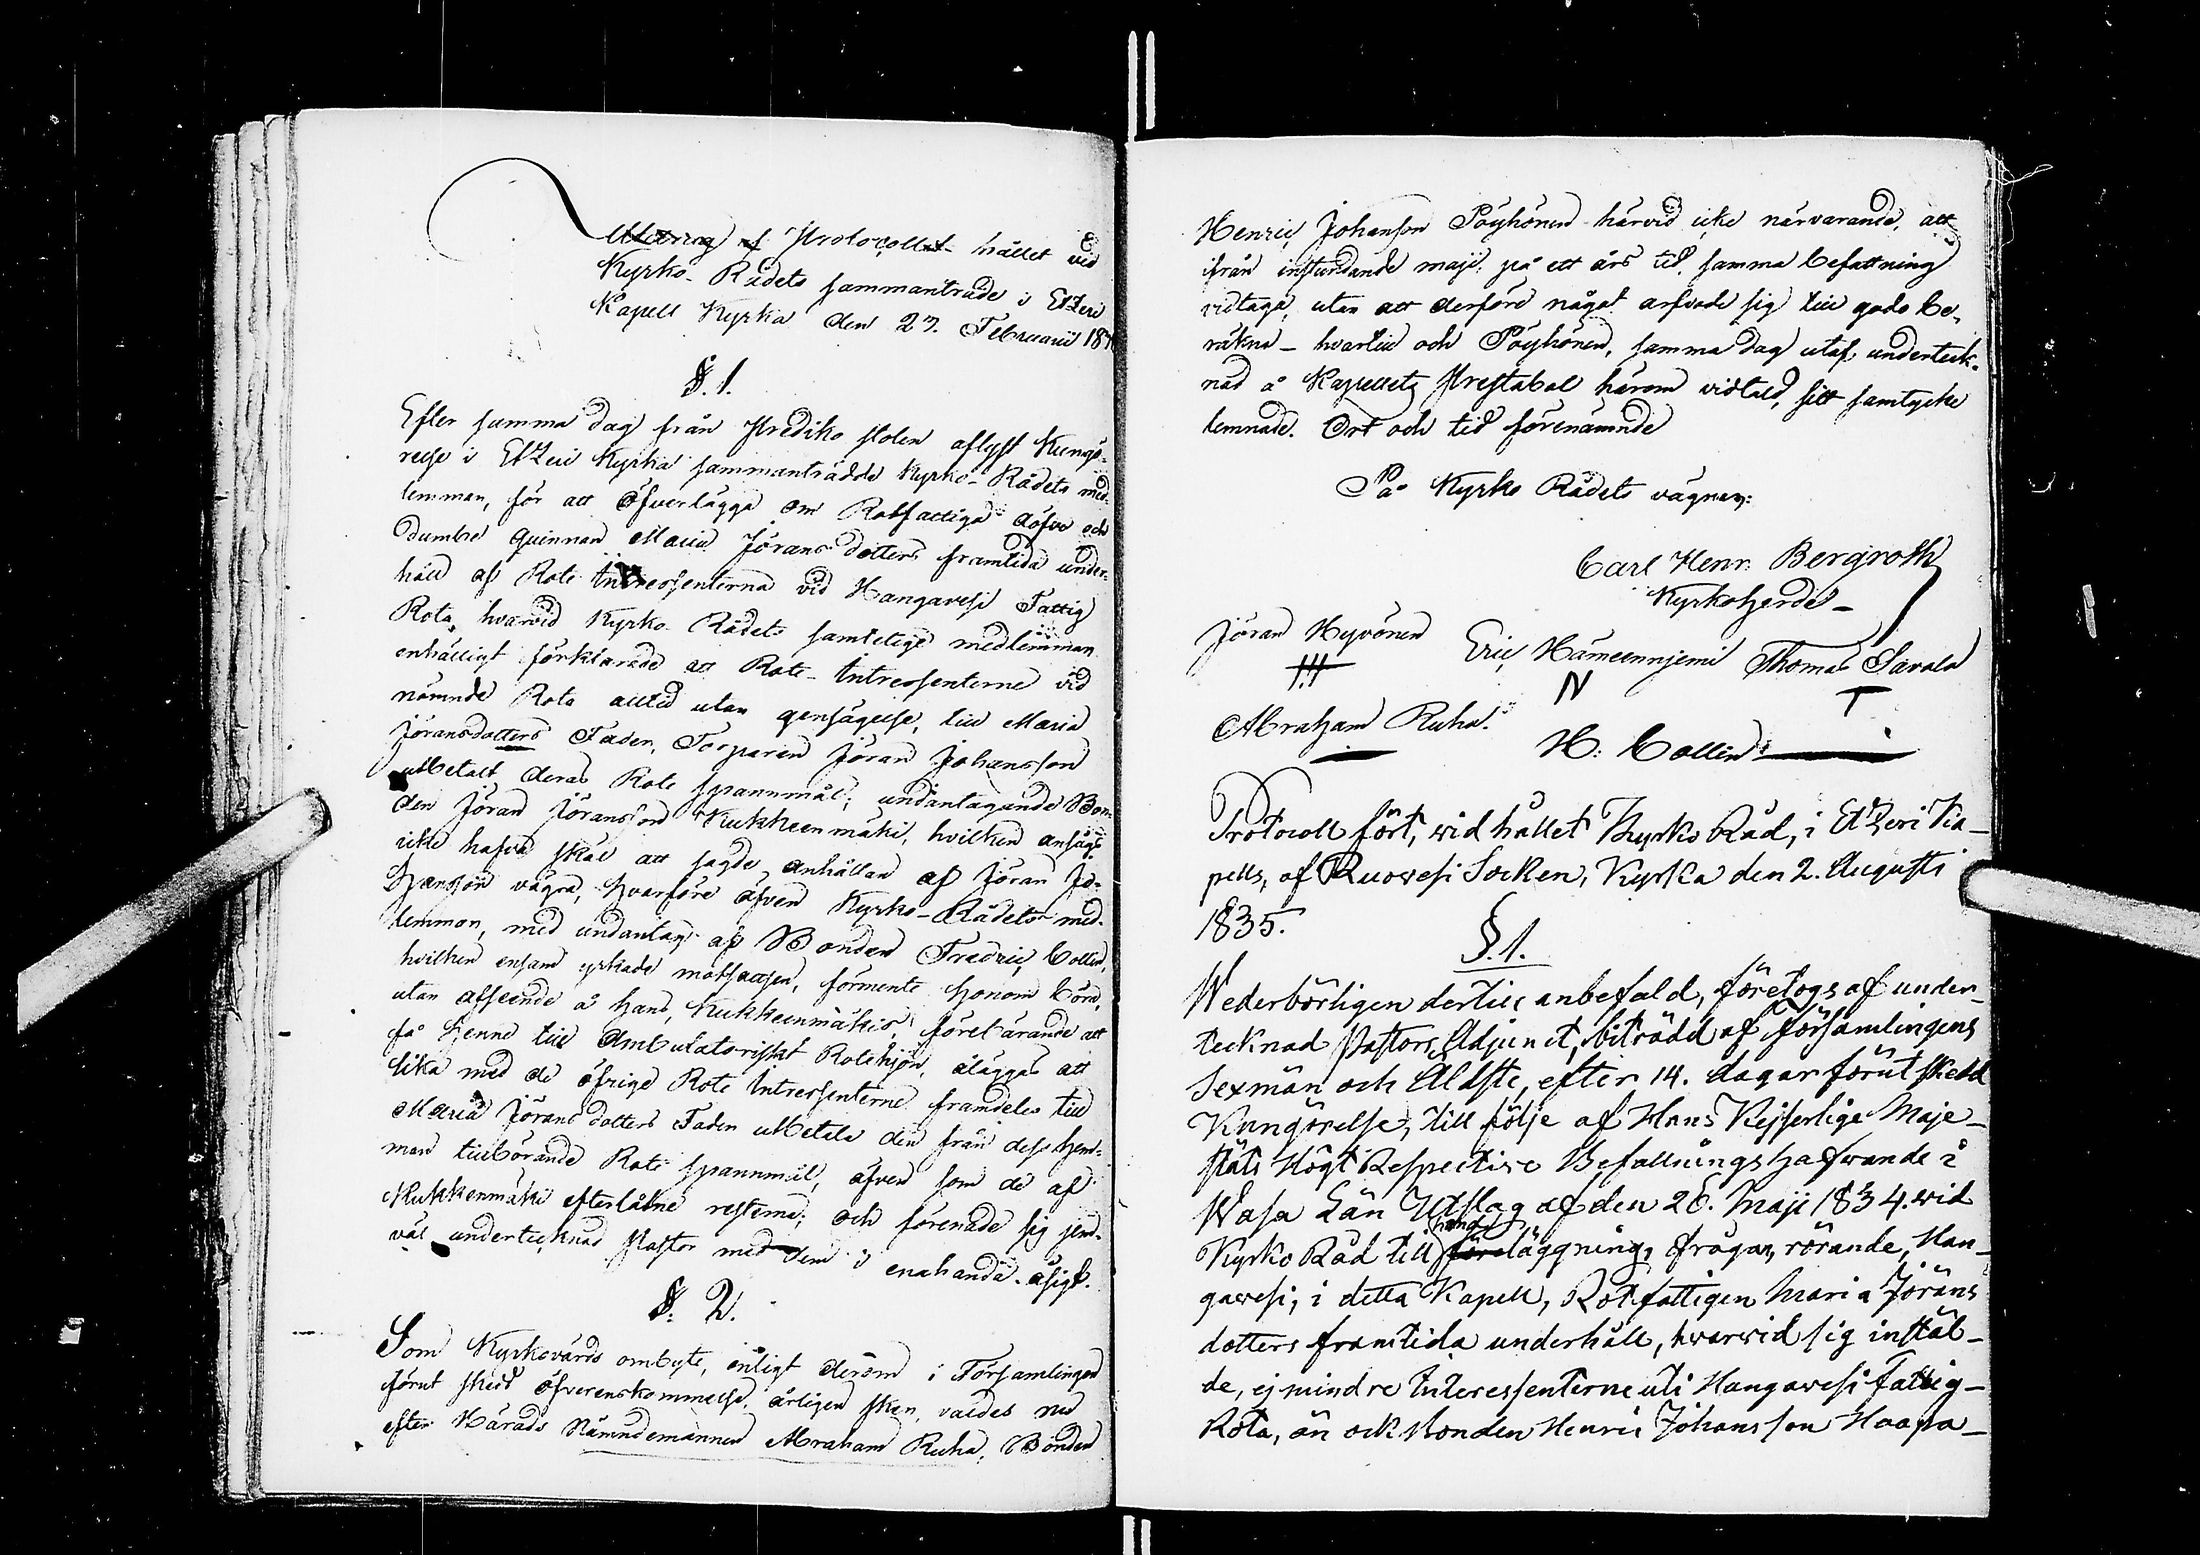 Utdrag af Protocollet hållet vid
Kyrko-Rådets sammanträde i Etzeri
Kapells Kyrka den 27. Februarii 183
§. 1.
Efter samma dag från Prediko stolen aflyst Kungö-
relse i Etzeri Kyrka sammanträdde Kyrko-Rådets med-
lemmar, för att öfverlägga om Rotfattiga döfva och
dumba Quinnan Maria Jörans dotters framtida under-
håll af Rote Intressenterna vid Hangavesi Fattig
Rota, hvarvid Kyrko-Rådets samtelige medlemmar
enhälligt förklarade att Rote-Intressenterne vid
nämnde Rota alltid utan gensägelse, till Maria
Jöransdotters Fader, Torparen Jöran Johansson
utbetalt deras Rote spannmål; undantagande Bon-
den Jöran Jöransson Kukkeenmäki, hvilken ansågs
icke hafva skäl att sagde anhållan af Jöran Jo-
hansson vägra, hvarföre äfven Kyrko-Rådets med-
lemmar, med undantag af Bonden Fredric Collin,
hvilken ensam yrkade motsatsen, förmente honom böra,
utan afseende å hans, Kukkeenmäkis företärande att
få henne till Ambulatoriskt Rotehjon, åläggas att
lika med de öfrige Rote Intressenterne framdeles till
Maria Jörans dotters Fader utbetala den från dess hem-
man tillbörande Rote spannmål, äfven som de af
Kukkenmäki efterlåtne resterne; och förenade sig jem-
väl undertecknad Pastor med dem i enahanda åsigt.
§. 2.
Som Kyrkovärds ombyte, enligt derom i Församlingen
förut skedd öfverenskommelse, årligen sker, valdes nu
efter Härads Nämndemannen Abraham Ruha, Bonden
Henric Johanson Pöyhönen härvid icke närvarande, att
ifrån instundande maji på ett års tid samma befattning
vidtaga, utan att derföre något arfvode sig till godo be-
räkna - hvartill och Pöyhönen, samma dag utaf underteck-
nad å Kapellets Prestabol härom vidtald, sitt samtycke
lemnade. Ort och tid förenämnde
På Kyrko Rådets vägnar:
Carl Henr. Bergroth
Kyrkoherde
Jöran Hyvönen Eric Hämeenniemi Thomas Savola
Abraham Ruha. H: Collin
Protocoll fört, wid hållet Kyrko Råd, i Etzeri Ka-
pells, af Ruowesi Socken, Kyrka den 2. Augusti
1835.
§. 1.
Wederbörligen dertill anbefald, företogs af under-
tecknad Pastors Adjunct, biträdd af församlingens
Sexmän och Äldste, efter 14. dagar förut skedd
Kungörelse, till följe af Hans Kejserlige Maje-
stäts Högt Respective Befallningshafwande i
Wasa Län Utslag af den 26. Maji 1834. wid
Kyrko Råd till handläggning, frågan, rörande, Han-
gawesi, i detta Kapell, Rotfattigen Maria Jörans
dotters framtida underhåll, hwarwid sig instäl-
de, ej mindre Interessenterne uti Hangawesi fattig-
Rota, än ock Bonden Henric Johansson Haapa-